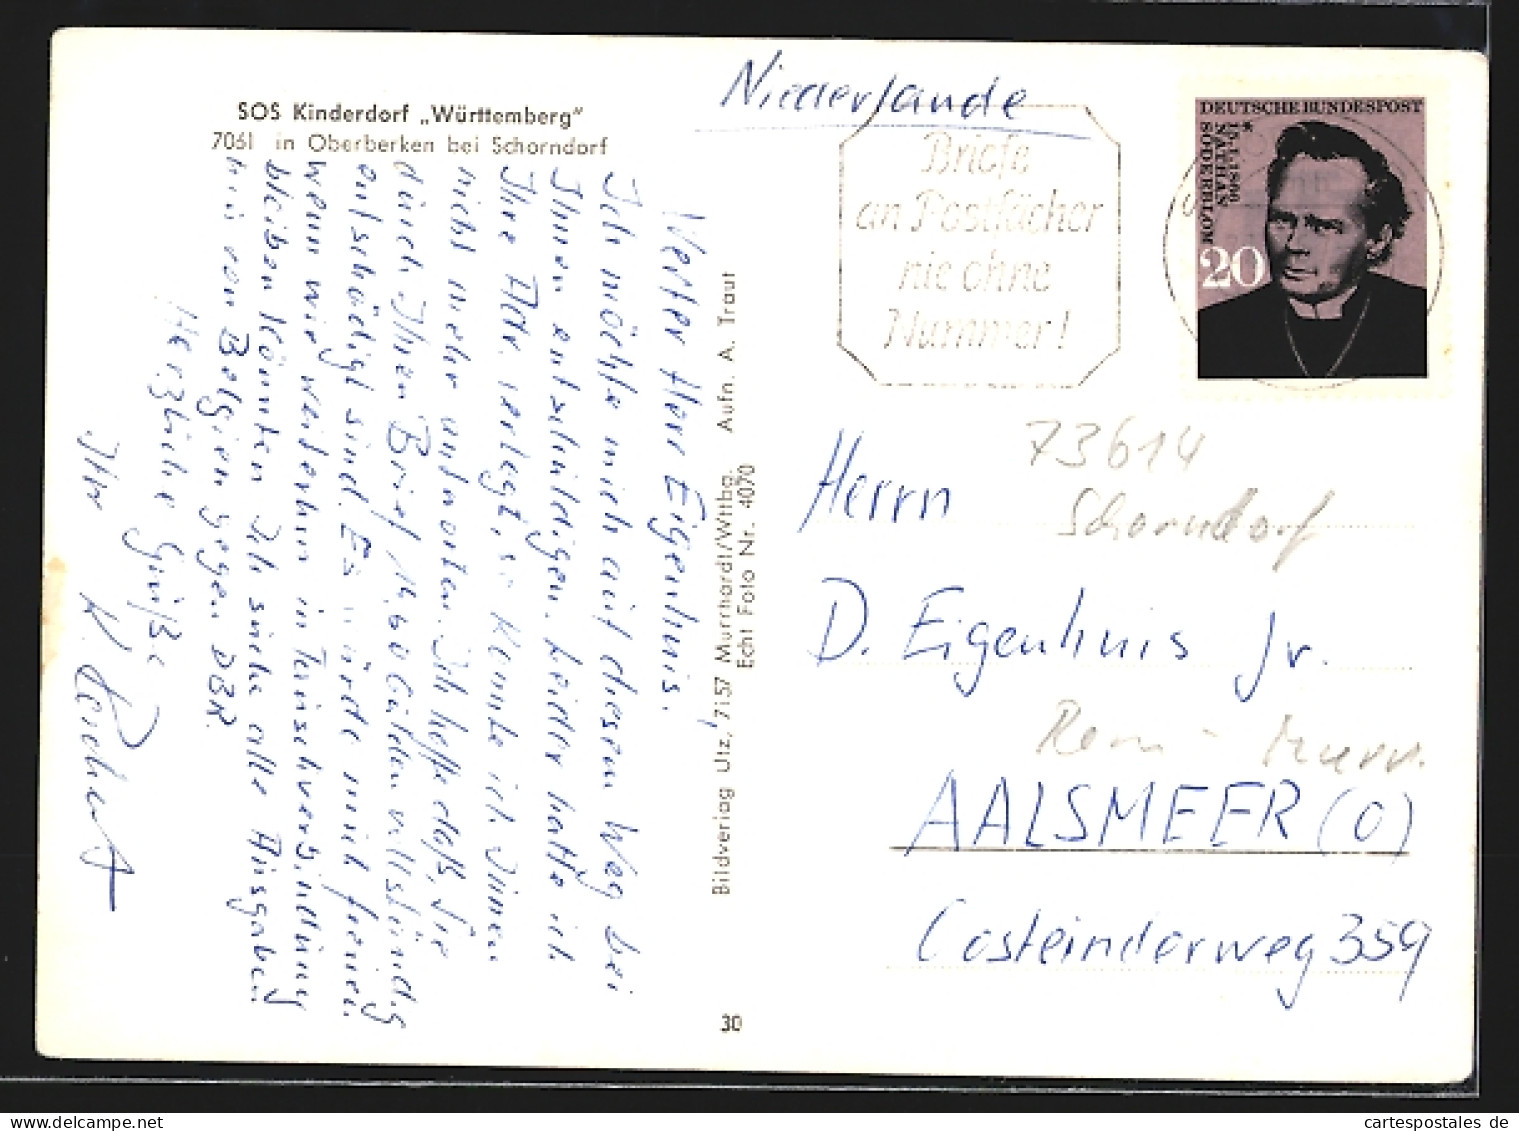 SOS Kinderdorf „Württemberg"
7061 in Oberberken bei Schorndorf
Werter Herr Eigenhuis,
Ich möchte mich auf diesem Weg bei
Ihnen entschuldigen. Leider hatte ich
Ihre Adr. verlegt, so konnte ich Ihnen
nicht mehr antworten. Ich hoffe daß Sie
durch Ihren Brief 14,60 Gulden vollständig
entschädigt sind. Es würde mich freuen
wenn wir weiterhin in Tauschverbindung
bleiben könnten. Ich suche alle Ausgaben
von Belgien gegen DBR.
Herzliche Grüße
Ihr K. Reichert
Bildverlag Utz, 7157 Murrhardt/Wttbg. Aufn. A. Traut
Echt Foto Nr. 4070
30
Niederlande
Briefe
an Postfächer
nie ohne
Nummer!
DEUTSCHE BUNDESPOST
* 15.1.1866
NATHAN
SÖDERBLOM
20
73614
Schorndorf
Herrn
D. Eigenhuis Jr.
Rem - Murr.
AALSMEER (O)
Costeinderweg 359
cartespostales de